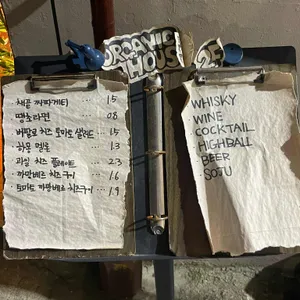 ORGANIC
HOUSE
25
채끝 짜파게티 ... 15
땡초라면 ... 08
버팔로 치즈 토마토 샐러드 ... 15
하몽 멜론 ... 13
과일 치즈 플레이트 ... 23
까망베르 치즈구이 ... 16
토마토 까망베르 치즈구이 ... 19
WHISKY
WINE
COCKTAIL
HIGHBALL
BEER
SOJU